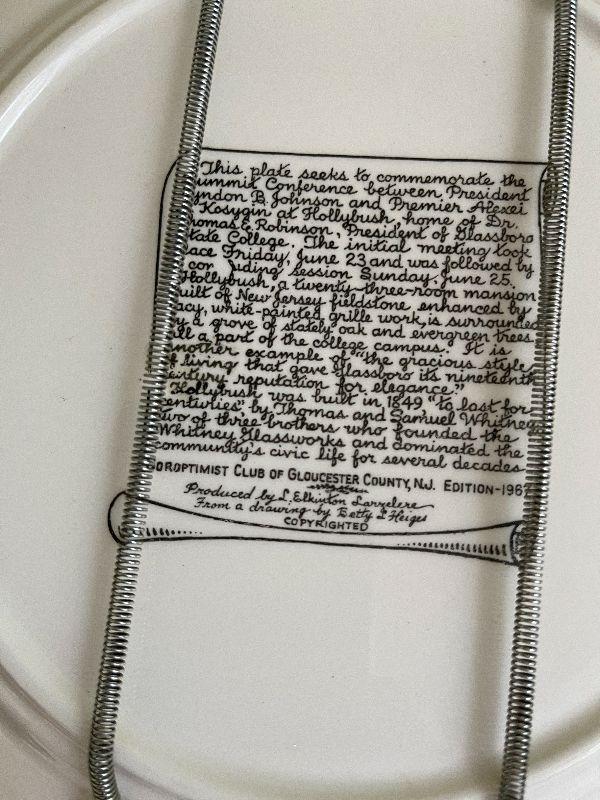 This plate seeks to commemorate the
ummit Conference between President
yndon B. Johnson and Premier Alexei
Kosygin at Hollybush, home of Dr.
homas E. Robinson, President of Glassboro
tate College. The initial meeting took
ace Friday, June 23 and was followed by
con uding session Sunday, June 25.
Hollybush, a twenty-three-room mansion
uilt of New Jersey fieldstone enhanced by
acy, white-painted grille work, is surrounded
y a grove of stately oak and evergreen trees
ll a part of the college campus. It is
nother example of "the gracious style
f living that gave Glassboro its nineteenth
entury reputation for elegance."
Hollybush was built in 1849 "to last for
centuries", by Thomas and Samuel Whitney
two of three brothers who founded the
Whitney Glassworks and dominated the
community's civic life for several decades
SOROPTIMIST CLUB OF GLOUCESTER COUNTY, N.J. EDITION-1967
Produced by L. Elkinton Larzelere
From a drawing by Betty L Heiges
COPYRIGHTED